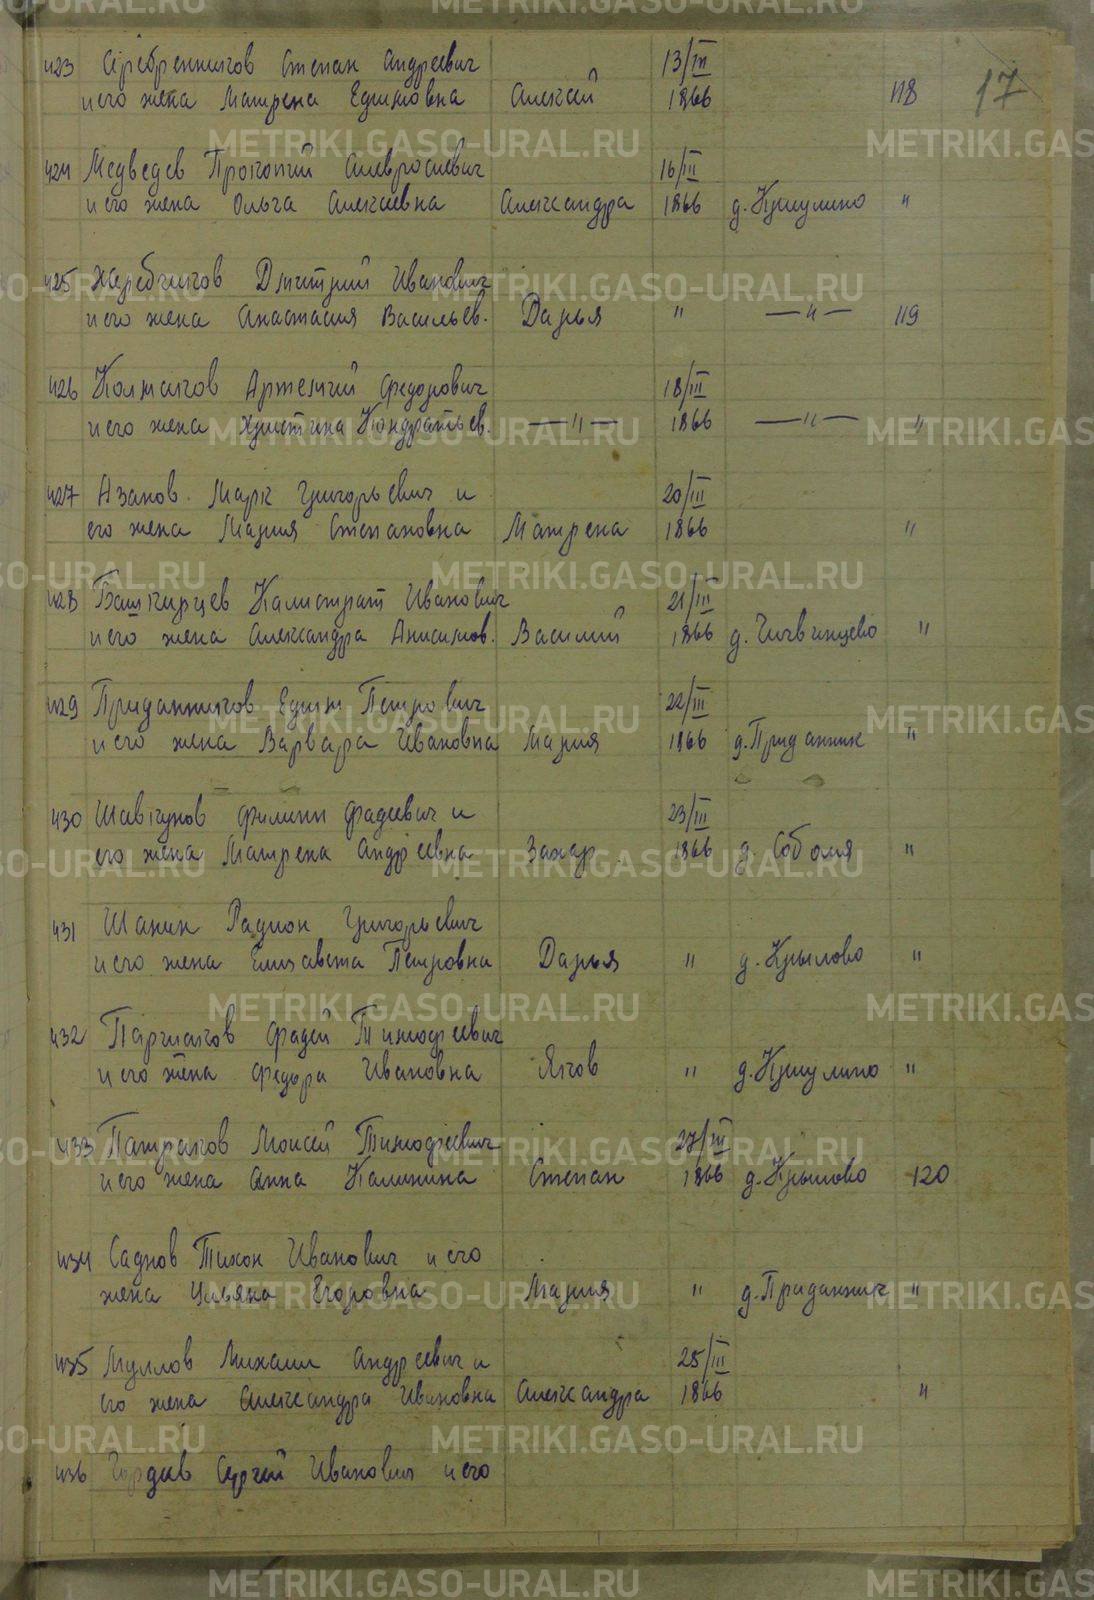 17
423 Серебренников Степан Андреевич 13/III
и его жена Матрена Едимовна Алексей 1866 118
424 Медведев Прокопий Амвросиевич 16/III
и его жена Ольга Алексеевна Александра 1866 д. Кишулино "
425 Жеребчиков Дмитрий Иванович
и его жена Анастасия Васильев. Дарья " —"— 119
426 Колмаков Артемий Федорович 18/III
и его жена Христина Кондратьев. —"— 1866 —"— "
427 Азанов Марк Григорьевич и 20/III
его жена Мария Степановна Матрена 1866 "
428 Башкирцев Калистрат Иванович 21/III
и его жена Александра Анисимов. Василий 1866 д. Чигвинцево "
429 Приданников Едим Петрович 22/III
и его жена Варвара Ивановна Мария 1866 д. Приданник "
430 Шавкунов Филипп Фадеевич и 23/III
его жена Матрена Андреевна Захар 1866 д. Соболя "
431 Шанин Радион Григорьевич
и его жена Елизавета Петровна Дарья " д. Крылово "
432 Фадей Тимофеевич
и его жена Федора Ивановна Яков " д. Кишулино "
433 Патраков Моисей Тимофеевич 27/III
и его жена Анна Калинина Степан 1866 д. Крылово 120
434 Садков Тихон Иванович и его
жена Ульяна Егоровна Мария " д. Приданник "
435 Муллов Михаил Андреевич и 25/III
его жена Александра Ивановна Александра 1866 "
436 Гордеев Сергей Иванович и его
METRIKI.GASO-URAL.RU